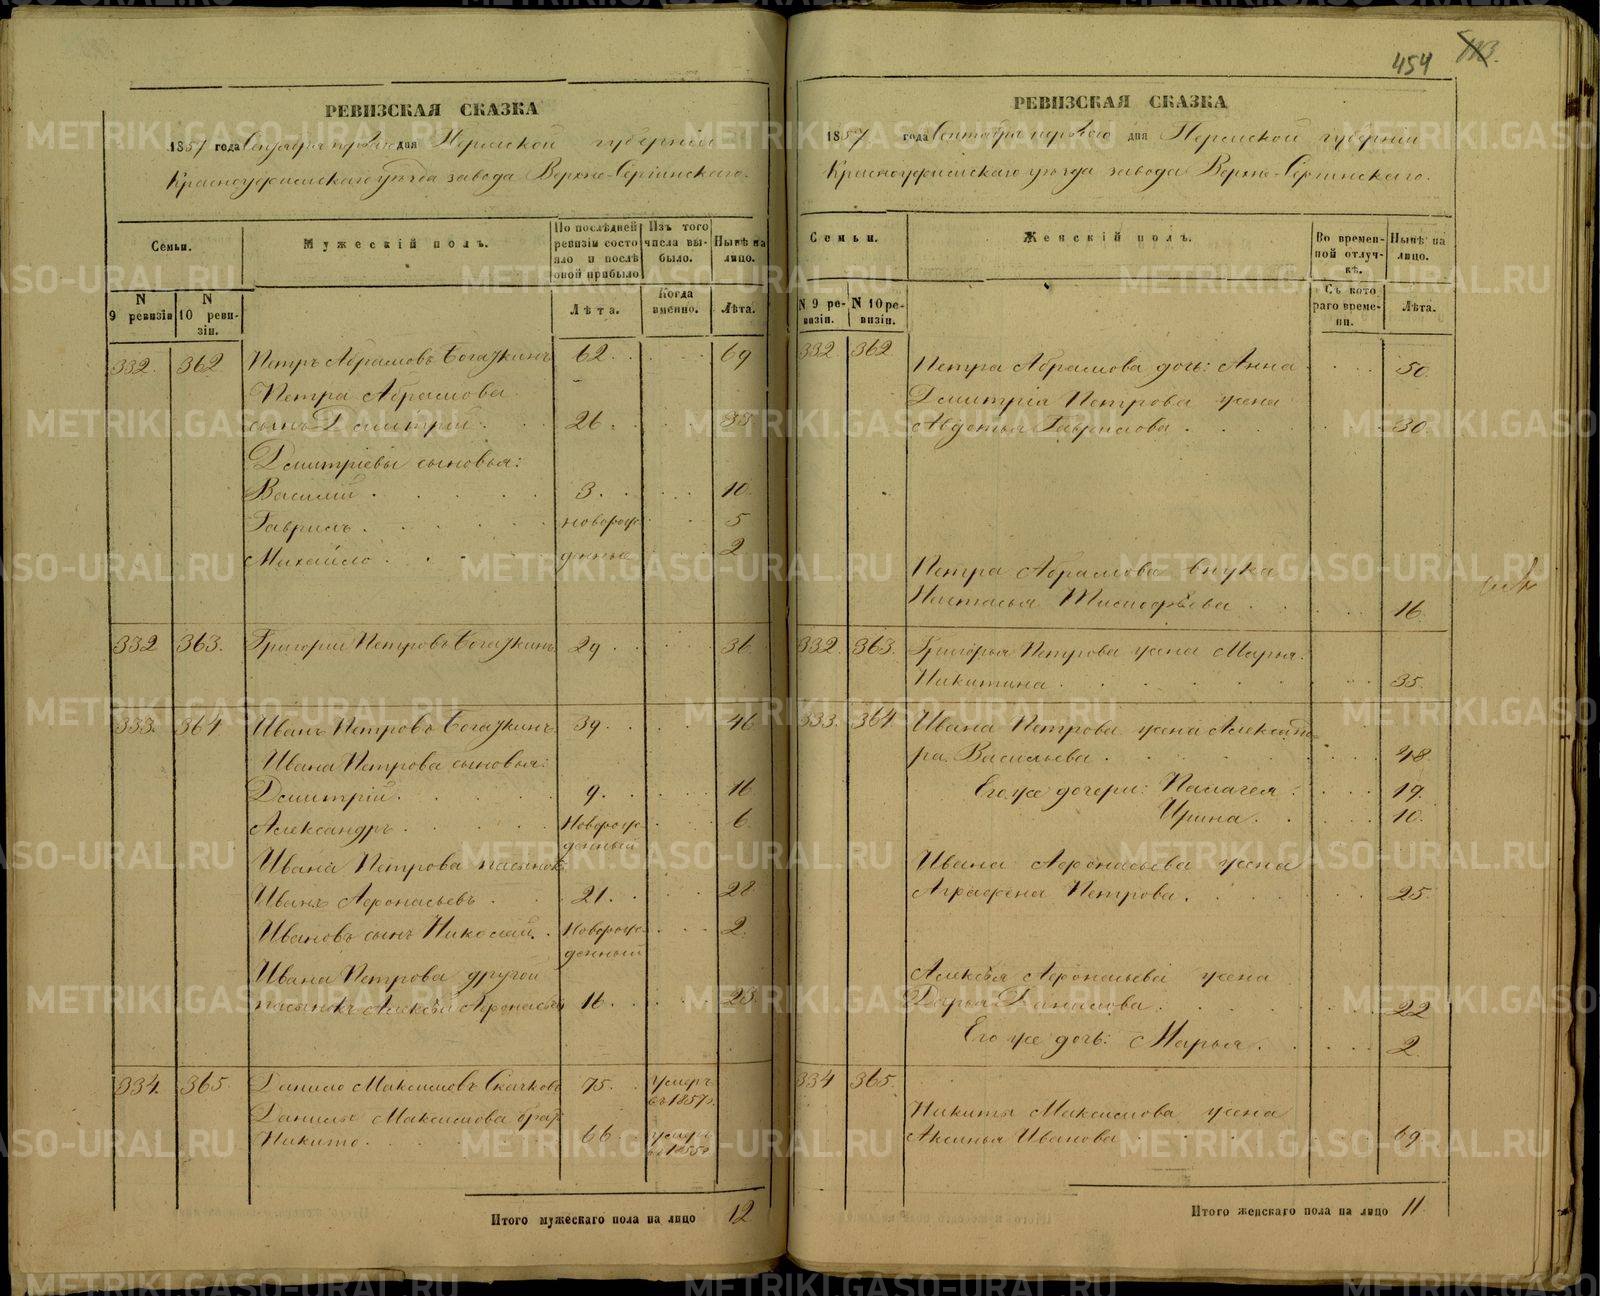 454
РЕВИЗСКАЯ СКАЗКА
1857 года Сентября перваго дня Пермской губерніи
Красноуфимскаго уѣзда завода Верхне-Сергинскаго.
Семьи.
Мужескій полъ.
По послѣдней ревизіи состояло и послѣ оной прибыло
Изъ того числа выбыло.
Нынѣ на лицо.
N 9 ревизіи
N 10 ревизіи.
Лѣта.
Когда именно.
Лѣта.
332. 362 Петръ Абрамовъ 62. 69
Петра Абрамова
сынъ Дмитрій. 26. 33
Дмитріевы сыновья:
Василій. 3. 10.
Гаврилъ. новорож 5
Михайло. денные 2
332 363. Григорій Петровъ 29. 36
333. 364 Иванъ Петровъ 39. 46
Ивана Петрова сыновья:
Дмитрій. 9. 16
Александръ. Новорож 6.
денный
Ивана Петрова пасынокъ
Иванъ Афонасьевъ 21. 28
Ивановъ сынъ Николай. Новорож 2.
денный
Ивана Петрова другой
пасынокъ Алексѣй Афонасьевъ 16. 23.
334. 365. Данило Максимовъ 75. умеръ
въ 1857г.
Данилы Максимова братъ
Никита. 66 умеръ
Итого мужескаго пола на лицо 12
РЕВИЗСКАЯ СКАЗКА
1857 года Сентября перваго дня Пермской губерніи
Красноуфимскаго уѣзда завода Верхне-Сергинскаго.
Семьи.
Женскій полъ.
Во временной отлучкѣ.
Нынѣ на лицо.
N 9 ревизіи.
N 10 ревизіи.
Съ котораго времени.
Лѣта.
332. 362
Петра Абрамова дочь: Анна 30.
Дмитрія Петрова жена
Авдотья Гаврилова. 30.
Петра Абрамова внука
Настасья Тимофѣева. 16.
332. 363. Григорья Петрова жена Марья
Никитина. 35.
333. 364. Ивана Петрова жена Александ
ра Васильева. 48
Его же дочери: Палагея. 19.
Ирина. 10.
Ивана Афонасьева жена
Аграфена Петрова. 25.
Алексѣя Афонасьева жена
Дарья Данилова. 22
Его же дочь: Марья. 2.
334 365.
Никиты Максимова жена
Аксинья Иванова. 69.
Итого женскаго пола на лицо 11
METRIKI.GASO-URAL.RU